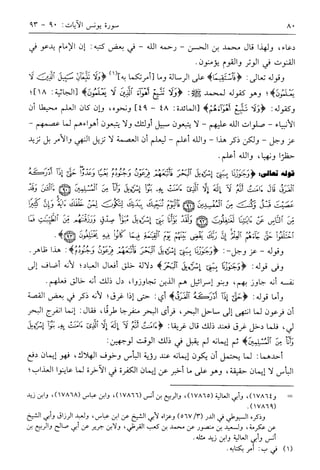 ٨٠
سورة يونس الآيات: ٩٠ - ٩٣
دعاء، ولهذا قال محمد بن الحسن - رحمه الله - في بعض كتبه: إن الإمام يدعو في
القنوت في الوتر والقوم يؤمنون.
وقوله تعالى: ﴿فَاسْتَقِيمَا﴾ على الرسالة وما [أمرتكما به]⁽¹⁾ ﴿وَلَا تَتَّبِعَآنِّ سَبِيلَ الَّذِينَ لَا
يَعْلَمُونَ﴾؛ وهو كقوله لمحمد ﷺ: ﴿وَلَا تَتَّبِعْ أَهْوَاءَ الَّذِينَ لَا يَعْلَمُونَ﴾ [الجاثية: ١٨]؛
وكقوله: ﴿وَلَا تَتَّبِعْ أَهْوَاءَهُمْ﴾ [المائدة: ٤٨ - ٤٩] ونحوه، وإن كان العلم محيطا أن
الأنبياء - صلوات الله عليهم - لا يتبعون سبيل أولئك ولا يتبعون أهواءهم لما عصمهم -
عز وجل - ولكن ذكر هذا - والله أعلم - ليعلم أن العصمة لا تزيل النهي والأمر بل تزيد
حظرًا ونهيا، والله أعلم.
قوله تعالى: ﴿وَجَاوَزْنَا بِبَنِي إِسْرَائِيلَ الْبَحْرَ فَأَتْبَعَهُمْ فِرْعَوْنُ وَجُنُودُهُ بَغْيًا وَعَدْوًا حَتَّى إِذَا أَدْرَكَهُ
الْغَرَقُ قَالَ آمَنْتُ أَنَّهُ لَا إِلَهَ إِلَّا الَّذِي آمَنَتْ بِهِ بَنُو إِسْرَائِيلَ وَأَنَا مِنَ الْمُسْلِمِينَ ﴿٩٠﴾ آلْآنَ وَقَدْ
عَصَيْتَ قَبْلُ وَكُنْتَ مِنَ الْمُفْسِدِينَ ﴿٩١﴾ فَالْيَوْمَ نُنَجِّيكَ بِبَدَنِكَ لِتَكُونَ لِمَنْ خَلْفَكَ آيَةً وَإِنَّ كَثِيرًا
مِنَ النَّاسِ عَنْ آيَاتِنَا لَغَافِلُونَ ﴿٩٢﴾ وَلَقَدْ بَوَّأْنَا بَنِي إِسْرَائِيلَ مُبَوَّأَ صِدْقٍ وَرَزَقْنَاهُمْ مِنَ الطَّيِّبَاتِ فَمَا
اخْتَلَفُوا حَتَّى جَاءَهُمُ الْعِلْمُ إِنَّ رَبَّكَ يَقْضِي بَيْنَهُمْ يَوْمَ الْقِيَامَةِ فِيمَا كَانُوا فِيهِ يَخْتَلِفُونَ ﴿٩٣﴾﴾.
وقوله - عز وجل -: ﴿وَجَاوَزْنَا بِبَنِي إِسْرَائِيلَ الْبَحْرَ فَأَتْبَعَهُمْ فِرْعَوْنُ وَجُنُودُهُ﴾: هذا ظاهر.
وفي قوله: ﴿وَجَاوَزْنَا بِبَنِي إِسْرَائِيلَ الْبَحْرَ﴾ دلالة خلق أفعال العباد؛ لأنه أضاف إلى
نفسه أنه جاوز بهم، وبنو إسرائيل هم الذين تجاوزوا، دل ذلك أنه خالق فعلهم.
وأما قوله: ﴿حَتَّى إِذَا أَدْرَكَهُ الْغَرَقُ﴾ أي: حتى إذا غرق؛ لأنه ذكر في بعض القصة
أن فرعون لما انتهى إلى ساحل البحر، فرأى البحر منفرجا طرقًا، فقال: إنما انفرج البحر
لي، فلما دخل غرق فعند ذلك قال غريقا: ﴿آمَنْتُ أَنَّهُ لَا إِلَهَ إِلَّا الَّذِي آمَنَتْ بِهِ بَنُو إِسْرَائِيلَ
وَأَنَا مِنَ الْمُسْلِمِينَ﴾ ثم إيمانه لم يقبل في ذلك الوقت لوجهين:
أحدهما: لما يحتمل أن يكون إيمانه عند رؤية البأس وخوف الهلاك، فهو إيمان دفع
البأس لا إيمان حقيقة، وهو على ما أخبر عن إيمان الكفرة في الآخرة لما عاينوا العذاب؛
= و١٧٨٦٤)، وأبي العالية (١٧٨٦٥)، والربيع بن أنس (١٧٨٦٦)، وابن عباس (١٧٨٦٨)، وابن زيد
(١٧٨٦٩).
وذكره السيوطي في الدر (٣/ ٥٦٧) وعزاه لأبي الشيخ عن ابن عباس، ولعبد الرزاق وأبي الشيخ
عن عكرمة، ولسعيد بن منصور عن محمد بن كعب القرظي، ولابن جرير عن أبي صالح والربيع بن
أنس وأبي العالية وابن زيد مثله.
(١) في ب: أمر بكتابه.